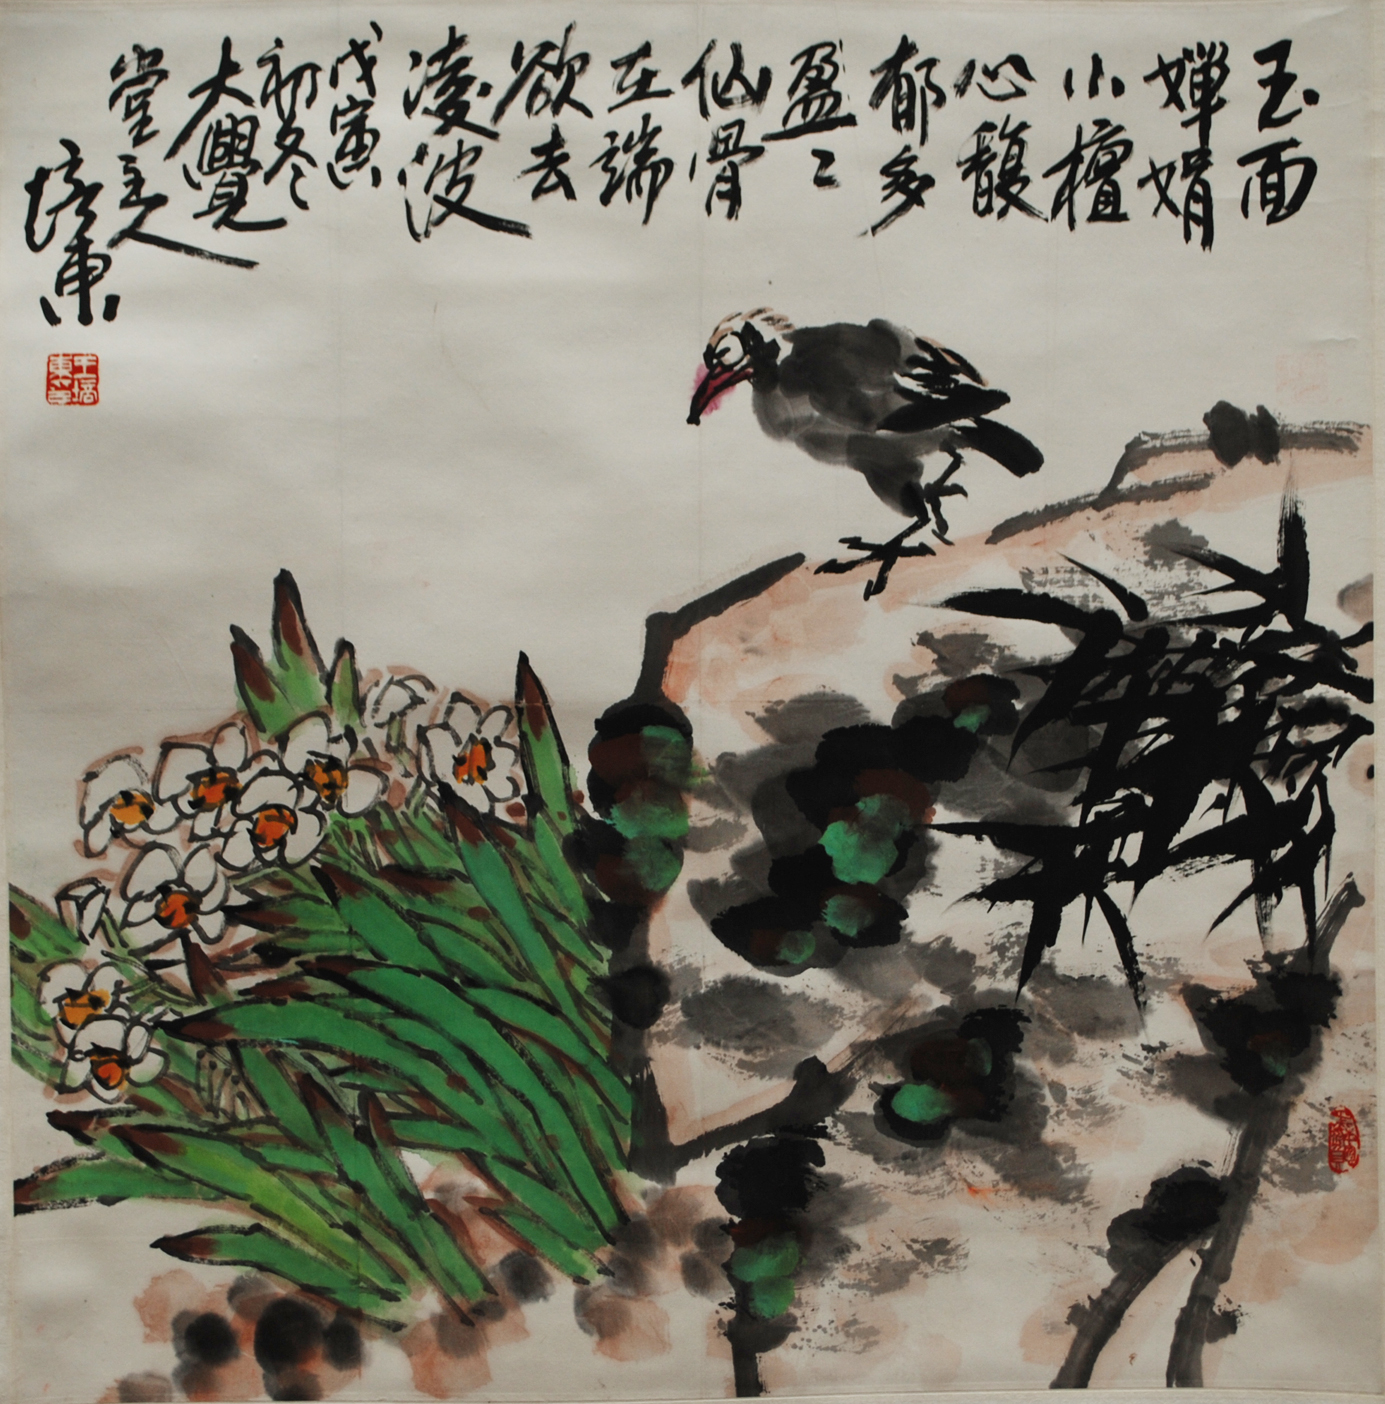 玉面
婵娟
小檀
心馥
郁多
盈〻
仙骨
在端
欲去
凌波
戊寅
初冬
大覺
堂主人
培東